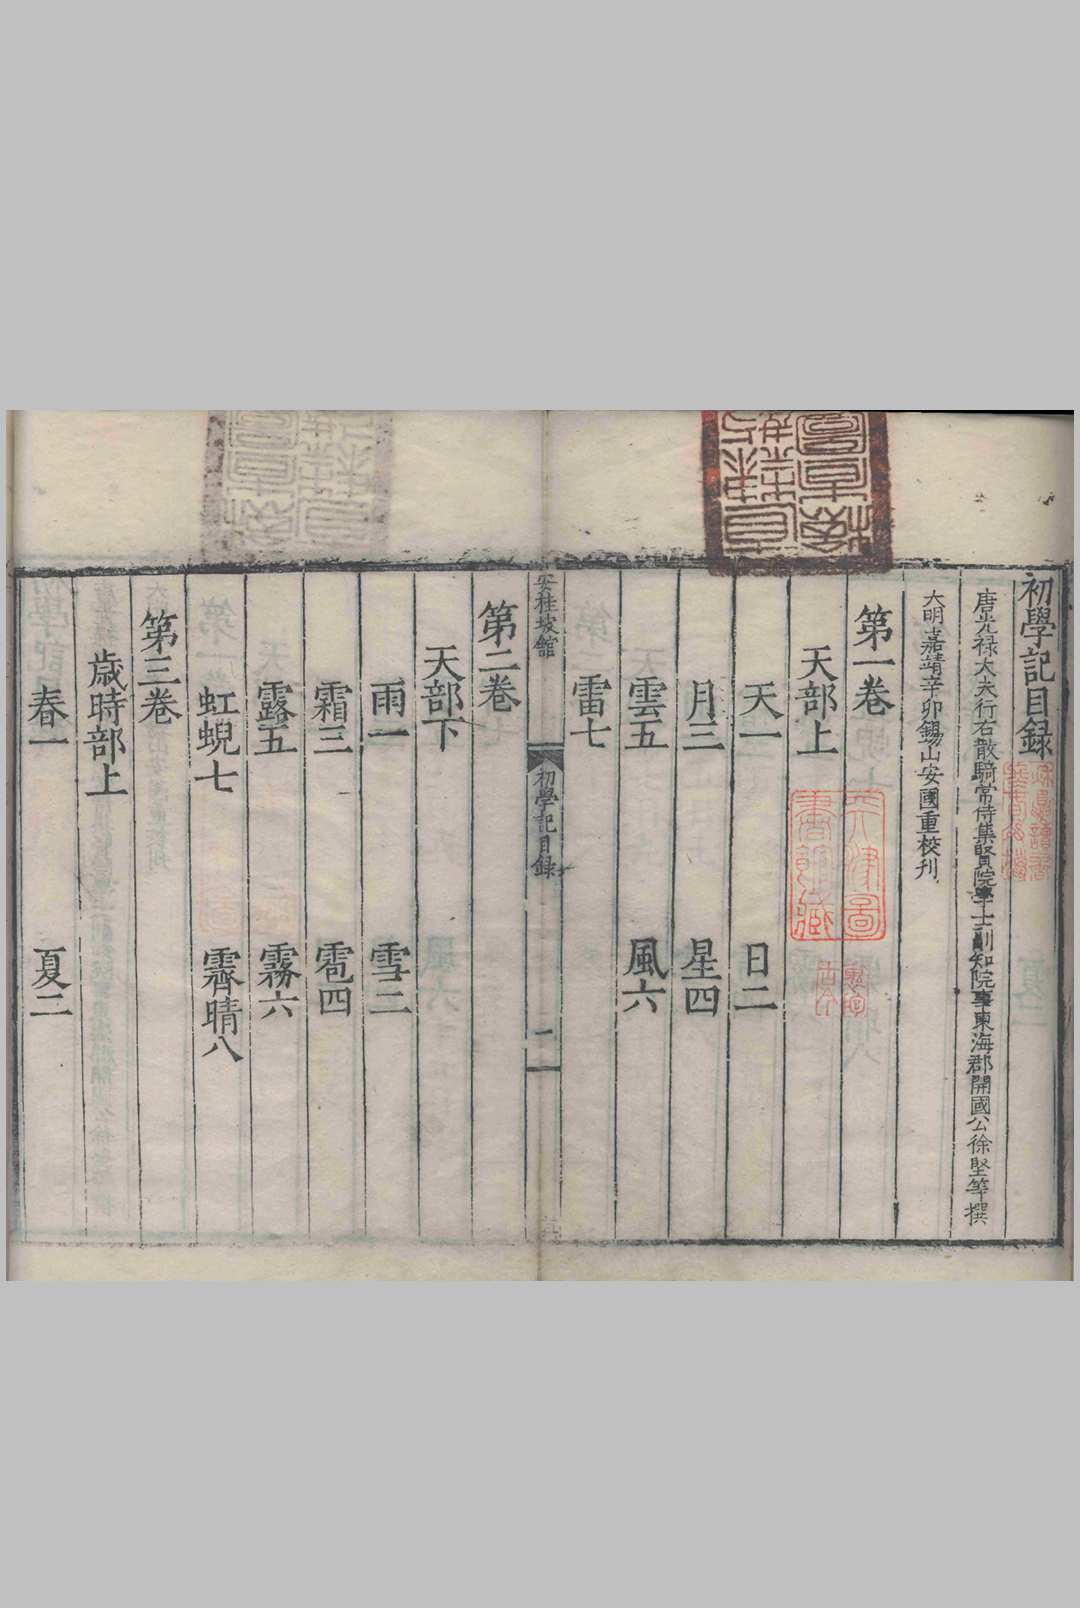 初學記目録
唐光禄大夫行右散騎常侍集賢院學士副知院事東海郡開國公徐堅等撰
大明嘉靖辛卯錫山安國重校刋
第一卷
天部上
天一 日二
月三 星四
雲五 風六
雷七
安桂坡館
初學記目録
一
第二卷
天部下
雨一 雪二
霜三 雹四
露五 霧六
虹蜺七 霽晴八
第三卷
歳時部上
春一 夏二
天津圖
書館藏